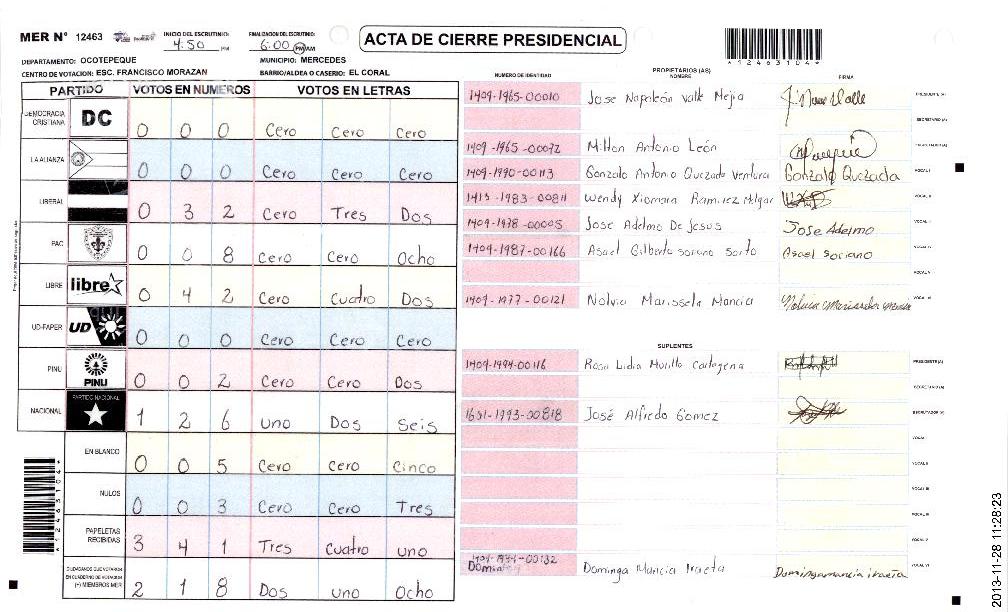 MER N° 12463 INICIO DEL ESCRUTINIO: 4:50 PM FINALIZACION DEL ESCRUTINIO: 6:00 PM AM ACTA DE CIERRE PRESIDENCIAL
*12463104*
DEPARTAMENTO: OCOTEPEQUE MUNICIPIO: MERCEDES
CENTRO DE VOTACION: ESC. FRANCISCO MORAZAN BARRIO/ALDEA O CASERIO: EL CORAL
PARTIDO VOTOS EN NUMEROS VOTOS EN LETRAS
DEMOCRACIA CRISTIANA DC 0 0 0 Cero Cero Cero
LA ALIANZA 0 0 0 Cero Cero Cero
LIBERAL 0 3 2 Cero Tres Dos
PAC 0 0 8 Cero Cero Ocho
LIBRE libre 0 4 2 Cero Cuatro Dos
UD-FAPER UD 0 0 0 Cero Cero Cero
PINU PINU 0 0 2 Cero Cero Dos
NACIONAL PARTIDO NACIONAL 1 2 6 uno Dos Seis
EN BLANCO 0 0 5 Cero cero Cinco
NULOS 0 0 3 Cero Cero Tres
PAPELETAS RECIBIDAS 3 4 1 Tres cuatro uno
CIUDADANOS QUE VOTARON EN CUADERNO DE VOTACION (+) MIEMBROS MER 2 1 8 Dos uno Ocho
NUMERO DE IDENTIDAD PROPIETARIOS (AS) NOMBRE FIRMA
1409-1965-00010 Jose Napoleón Valle Mejia PRESIDENTE (A)
SECRETARIO (A)
1409-1965-00072 Milton Antonio León ESCRUTADOR (A)
1409-1990-00113 Gonzalo Antonio Quezada Ventura Gonzalo Quezada VOCAL I
1413-1983-00811 Wendy Xiomara Ramirez Melgar VOCAL II
1409-1978-00005 Jose Adelmo De Jesus Jose Adelmo VOCAL III
1409-1987-00166 Asael Gilberto Soriano Sorto Asael Soriano VOCAL IV
VOCAL V
1409-1977-00121 Nolvia Marissela Mancia VOCAL VI
SUPLENTES
1409-1994-00116 Rosa Lidia Murillo Cartagena PRESIDENTE (A)
SECRETARIO (A)
1651-1993-00818 José Alfredo Gomez ESCRUTADOR (A)
VOCAL I
VOCAL II
VOCAL III
VOCAL IV
VOCAL V
Dominga Mancia Iraeta Domingamancia iraeta VOCAL VI
*12463104*
2013-11-28 11:28:23